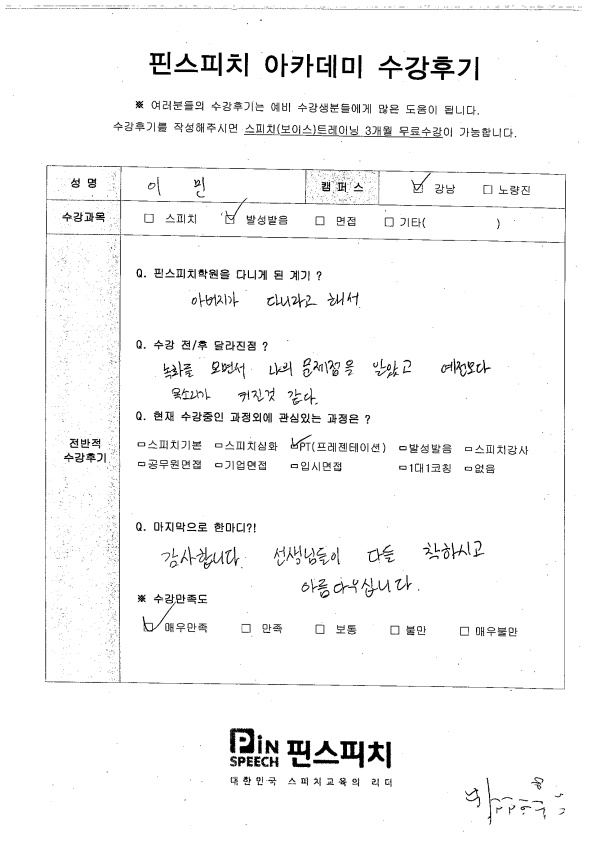 핀스피치 아카데미 수강후기
※ 여러분들의 수강후기는 예비 수강생분들에게 많은 도움이 됩니다.
수강후기를 작성해주시면 스피치(보이스)트레이닝 3개월 무료수강이 가능합니다.
성 명 이 민 캠퍼스 ☑ 강남 □ 노량진
수강과목 □ 스피치 ☑ 발성발음 □ 면접 □ 기타( )
Q. 핀스피치학원을 다니게 된 계기 ?
아버지가 다니라고 해서
Q. 수강 전/후 달라진점 ?
녹화를 보면서 나의 문제점을 알았고 예전보다
목소리가 커진것 같다.
Q. 현재 수강중인 과정외에 관심있는 과정은 ?
전반적
수강후기
□스피치기본 □스피치심화 ☑PT(프레젠테이션) □발성발음 □스피치강사
□공무원면접 □기업면접 □입시면접 □1대1코칭 □없음
Q. 마지막으로 한마디?!
감사합니다. 선생님들이 다들 착하시고
아름다우십니다.
※ 수강만족도
☑ 매우만족 □ 만족 □ 보통 □ 불만 □ 매우불만
PiN
SPEECH 핀스피치
대한민국 스피치교육의 리더